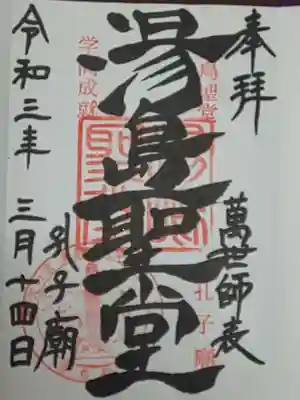 奉拝
萬世師表
湯島聖堂
孔子廟
令和三年 三月十四日
湯島聖堂
学問成就
孔子廟